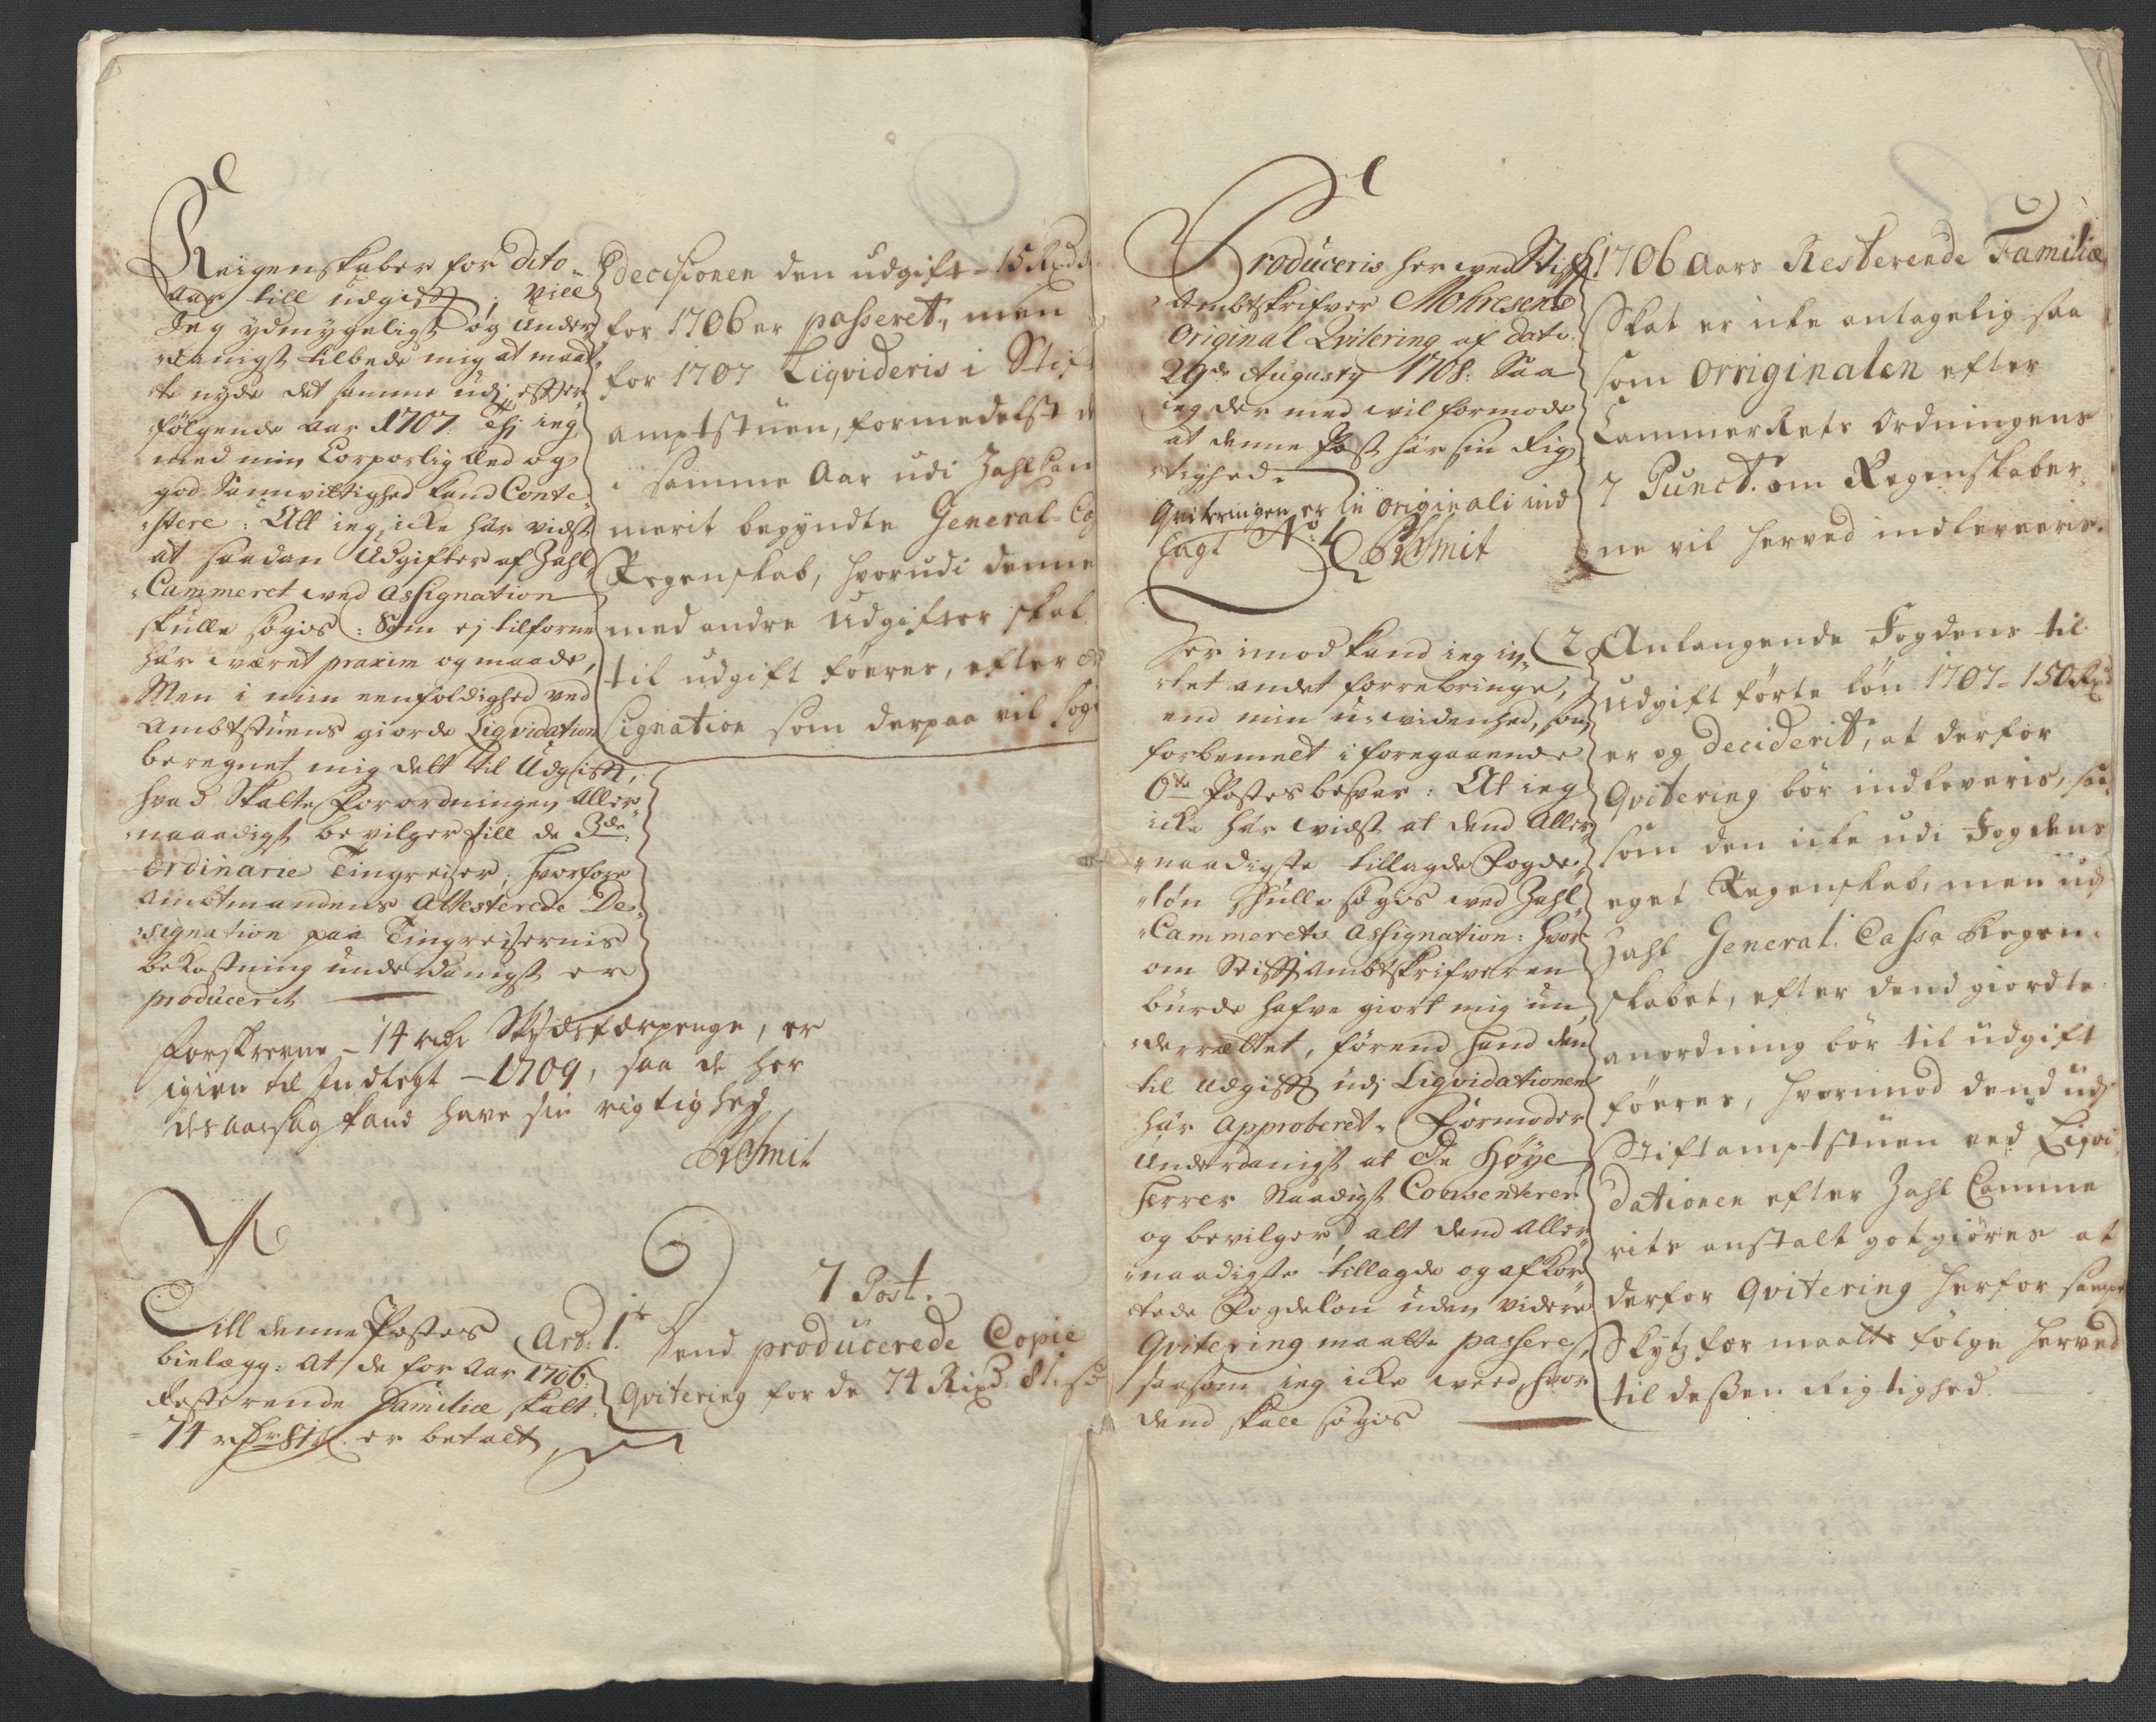 Reigenskaber for dito
Aar till udgift; Vill
Jeg ydmygeligst og under
danigst tilbede mig at maat
te nyde det samme udj efter
følgende Aar 1707. Thj ieg
med min Corporlig Eed og
god Samvittighed kand Conte
stere: Att ieg icke har vidst
at saadan Udgifter af Zahl
Cammeret ved Assignation
skulle søgis: Som ej tilforne
har været praxim og maade,
Men i min eenfoldighed ved
Ambtstuens giorde Liqvidation
beregnet mig delt til Udgift,
hvad Skatte Forordningen Aller
naadigst bevilger till de 3de
Ordinarie Tingreiser; hvorfore
Ambtmandens Attesterede De
signation paa Tingreisernis
bekostning underdanigst er
producerit
Forskrevne - 14 rdr Skydsferpenge, er
igien til Indtegt - 1709, saa de her
des aarsag kand have sin rigtighed
Smit
Till denne Postes
bielægg: At de for Aar 1706
Resterende Familie skatt
74 rdr 81 s. er betalt,
decisionen den udgift - 15 Rixd
for 1706 er passeret, men
for 1707 Liqvideris i Stift
amptstuen, formedelst d
i samme Aar udi Zahl Cam
merit begyndte General Ca
Regenskab, hvorudi denne
med andre udgifter skal
til udgift føeres, efter As
signation som derpaa vil søg
7 Post.
Art: 1. Dend producerede Copie
Qvitering for de 74 Rixd 81 s
Produceris her ved Stift
Ambtskrifver Mohresens
Original Qvitering af dato
29de Augusty 1708. Saa
ieg der med vil formode
at denne Post har sin Rig
tighed.
Qviteringen er in originali ind
lagt No 4 Smit
Her imod kand ieg in
tet andet forrebringe,
end min uvidenhed, som
forbemelt i foregaaende
6te Postes besvar: At ieg
icke har vidst at dend Aller
naadigste tillagde Fogde
løn skulle søgis ved Zahl
Cammerets Assignation: hvor
om Stiftambtskrifveren
burde hafve giort mig un
derrettet, førend hand den
til Udgift udj Liqvidationen
har Approberet. Formoder
Underdanigst at De Høye
Herrer Naadigst Consenterer
og bevilger alt dend Aller
naadigste tillagde og afkor
tede Fogdeløn uden videre
Qvitering maatte passere,
saasom ieg icke veed, hvor
dend skall søgis
1706 Aars Resterende Familie
Skat er icke antagelig saa
som Orriginalen efter
Cammer Rets Ordningens
7 Punct. om Regenskaber
ne vil herved indleveris.
2. Anlangende Fogdens til
Udgift førte løn 1707 - 150 Rixd
er og Deciderit, at derfor
Qvitering bør indleveris, saa
som den icke udi Fogdens
eget Regenskab, men udj
Zahl General Cassa Regen
skabet, efter dend giordte
anordning bør til udgift
føeres, hvorimod dend udj
Stiftamptstuen ved Liqvi
dationen efter Zahl Camme
rits anstalt gotgiøres at
derfor Qvitering herfor sampt
Skytzfor maatte følge herved
til dessen Rigtighed